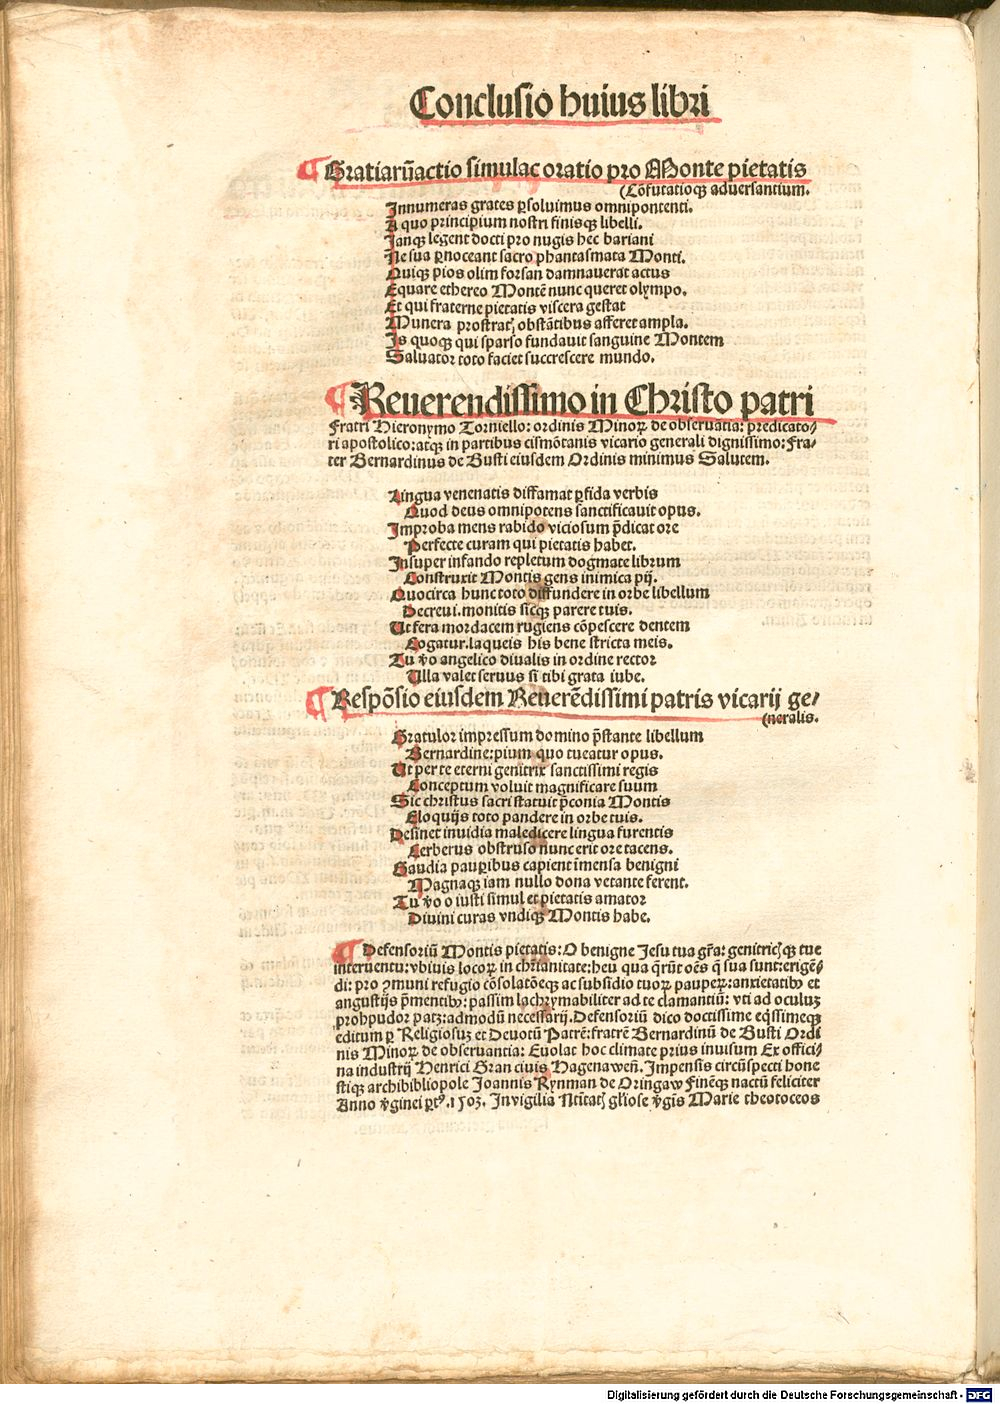 Conclusio huius libri
¶ Gratiarūactio simulac oratio pro Monte pietatis
(Cōfutatioqꝫ aduersantium.
Innumeras grates ꝑsoluimus omnipontenti.
A quo principium nostri finisqꝫ libelli.
Janqꝫ legent docti pro nugis hec bariani
Ne sua ꝑnoceant sacro phantasmata Monti.
Quiqꝫ pios olim forsan damnauerat actus
Equare ethereo Montē nunc queret olympo.
Et qui fraterne pietatis viscera gestat
Munera prostratꝭ obstātibus afferet ampla.
Is quoqꝫ qui sparso fundauit sanguine Montem
Saluator toto faciet succrescere mundo.
¶ Reuerendissimo in Christo patri
Fratri Hieronymo Torniello: ordinis Minoꝝ de obseruātia: predicato-
ri apostolico: atqꝫ in partibus cismōtanis vicario generali dignissimo: Fra-
ter Bernardinus de Busti eiusdem Ordinis minimus Salutem.
Lingua venenatis diffamat ꝑfida verbis
Quod deus omnipotens sanctificauit opus.
Improba mens rabido viciosum p̄dicat ore
Perfecte curam qui pietatis habet.
Insuper infando repletum dogmate librum
Construxit Montis gens inimica pij.
Quocirca hunc toto diffundere in orbe libellum
Decreui. monitis sicqꝫ parere tuis.
Ut fera mordacem rugiens cōpescere dentem
Cogatur. laqueis his bene stricta meis.
Tu v̊o angelico diualis in ordine rector
Ulla valet seruus si tibi grata iube.
¶ Respōsio eiusdem Reuerēdissimi patris vicarij ge-
(neralis.
Gratulor impressum domino p̄stante libellum
Bernardine: pium quo tueatur opus.
Ut per te eterni genitrix sanctissimi regis
Conceptum voluit magnificare suum
Sic christus sacri statuit p̄conia Montis
Eloquijs toto pandere in orbe tuis.
Desinet inuidia maledicere lingua furentis
Cerberus obstruso nunc erit ore tacens.
Gaudia pauꝑibus capient imensa benigni
Magnaqꝫ iam nullo dona vetante ferent.
Tu v̊o o iusti simul et pietatis amator
Diuini curas vndiqꝫ Montis habe.
¶ Defensoriū Montis pietatis: O benigne Jesu tua gr̄a: genitricꝭqꝫ tue
interuentu: vbiuis locoꝝ in chr̄ianitate: heu qua q̄rūt oēs q̄ sua sunt: erigē-
di: pro ꝯmuni refugio cōsolatōeqꝫ ac subsidio tuoꝝ paupeꝝ: anxietatibꝰ et
angustijs p̄mentibꝰ: passim lachrymabiliter ad te clamantiū: vti ad oculuꝫ
prohpudor patꝫ: admodū necessarij. Defensoriū dico doctissime eq̄ssimeqꝫ
editum ꝑ Religiosuꝫ et Deuotū Patrē: fratrē Bernardinū de Busti Ordi
nis Minoꝝ de obseruantia: Euolac hoc climate prius inuisum Ex offici-
na industrij Henrici Gran ciuis Hagenaweñ. Impensis circūspecti hone
stiqꝫ archibibliopole Joannis Rynman de Oringaw Finēqꝫ nactū feliciter
Anno v̓ginei ꝑtꝰ. 1503. In vigilia Ntītatꝭ gl̓iose v̓gīs Marie theotoceos
Digitalisierung gefördert durch die Deutsche Forschungsgemeinschaft - DFG